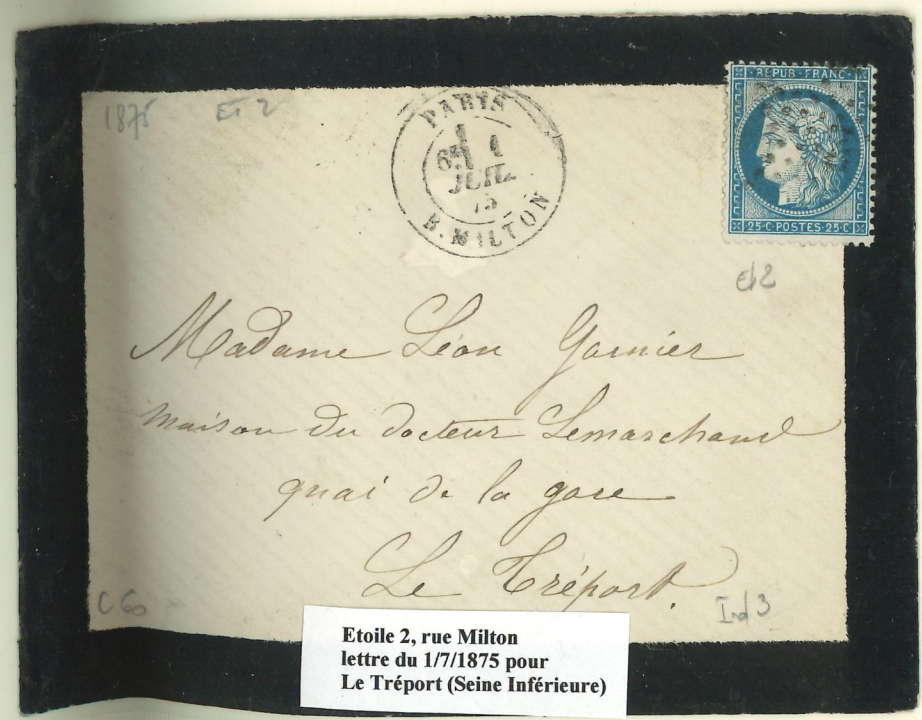 1875
Et 2
PARIS
6E
1
JUIL
75
R. MILTON
REPUB·FRANC
25·C·POSTES·25·C
Et 2
Madame Léon Garnier
maison du docteur Lemarchand
quai de la gare
Le Tréport.
C 60
Ind 3
Etoile 2, rue Milton
lettre du 1/7/1875 pour
Le Tréport (Seine Inférieure)